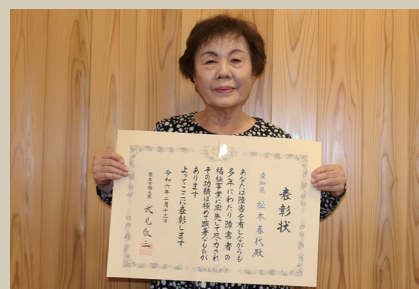 表彰状
愛知県 松本春代殿
あなたは障害を有しながらも
多年にわたり障害者の
福祉事業に率先して尽力され
その功績は極めて顕著なものが
あります
よってここに表彰します
令和六年二月十三日
厚生労働大臣 武見敬三